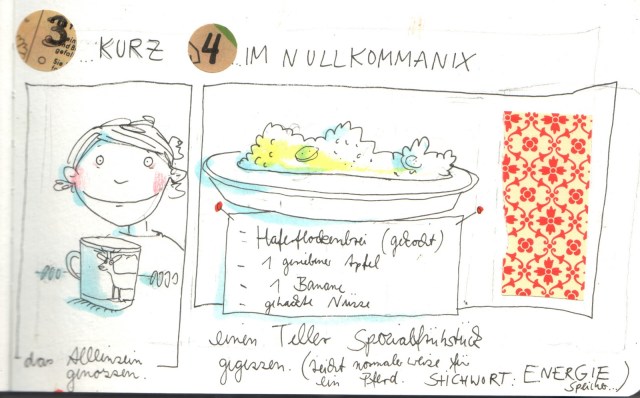 3 ...KURZ
4 ...IM NULLKOMMANIX
- Haferflockenbrei (gekocht)
- 1 geriebener Apfel
- 1 Banane
- gehackte Nüsse
das Alleinsein
genossen.
einen Teller Spezialfrühstück
gegessen. (reicht normalerweise für
ein Pferd. STICHWORT: ENERGIE
speicher...)